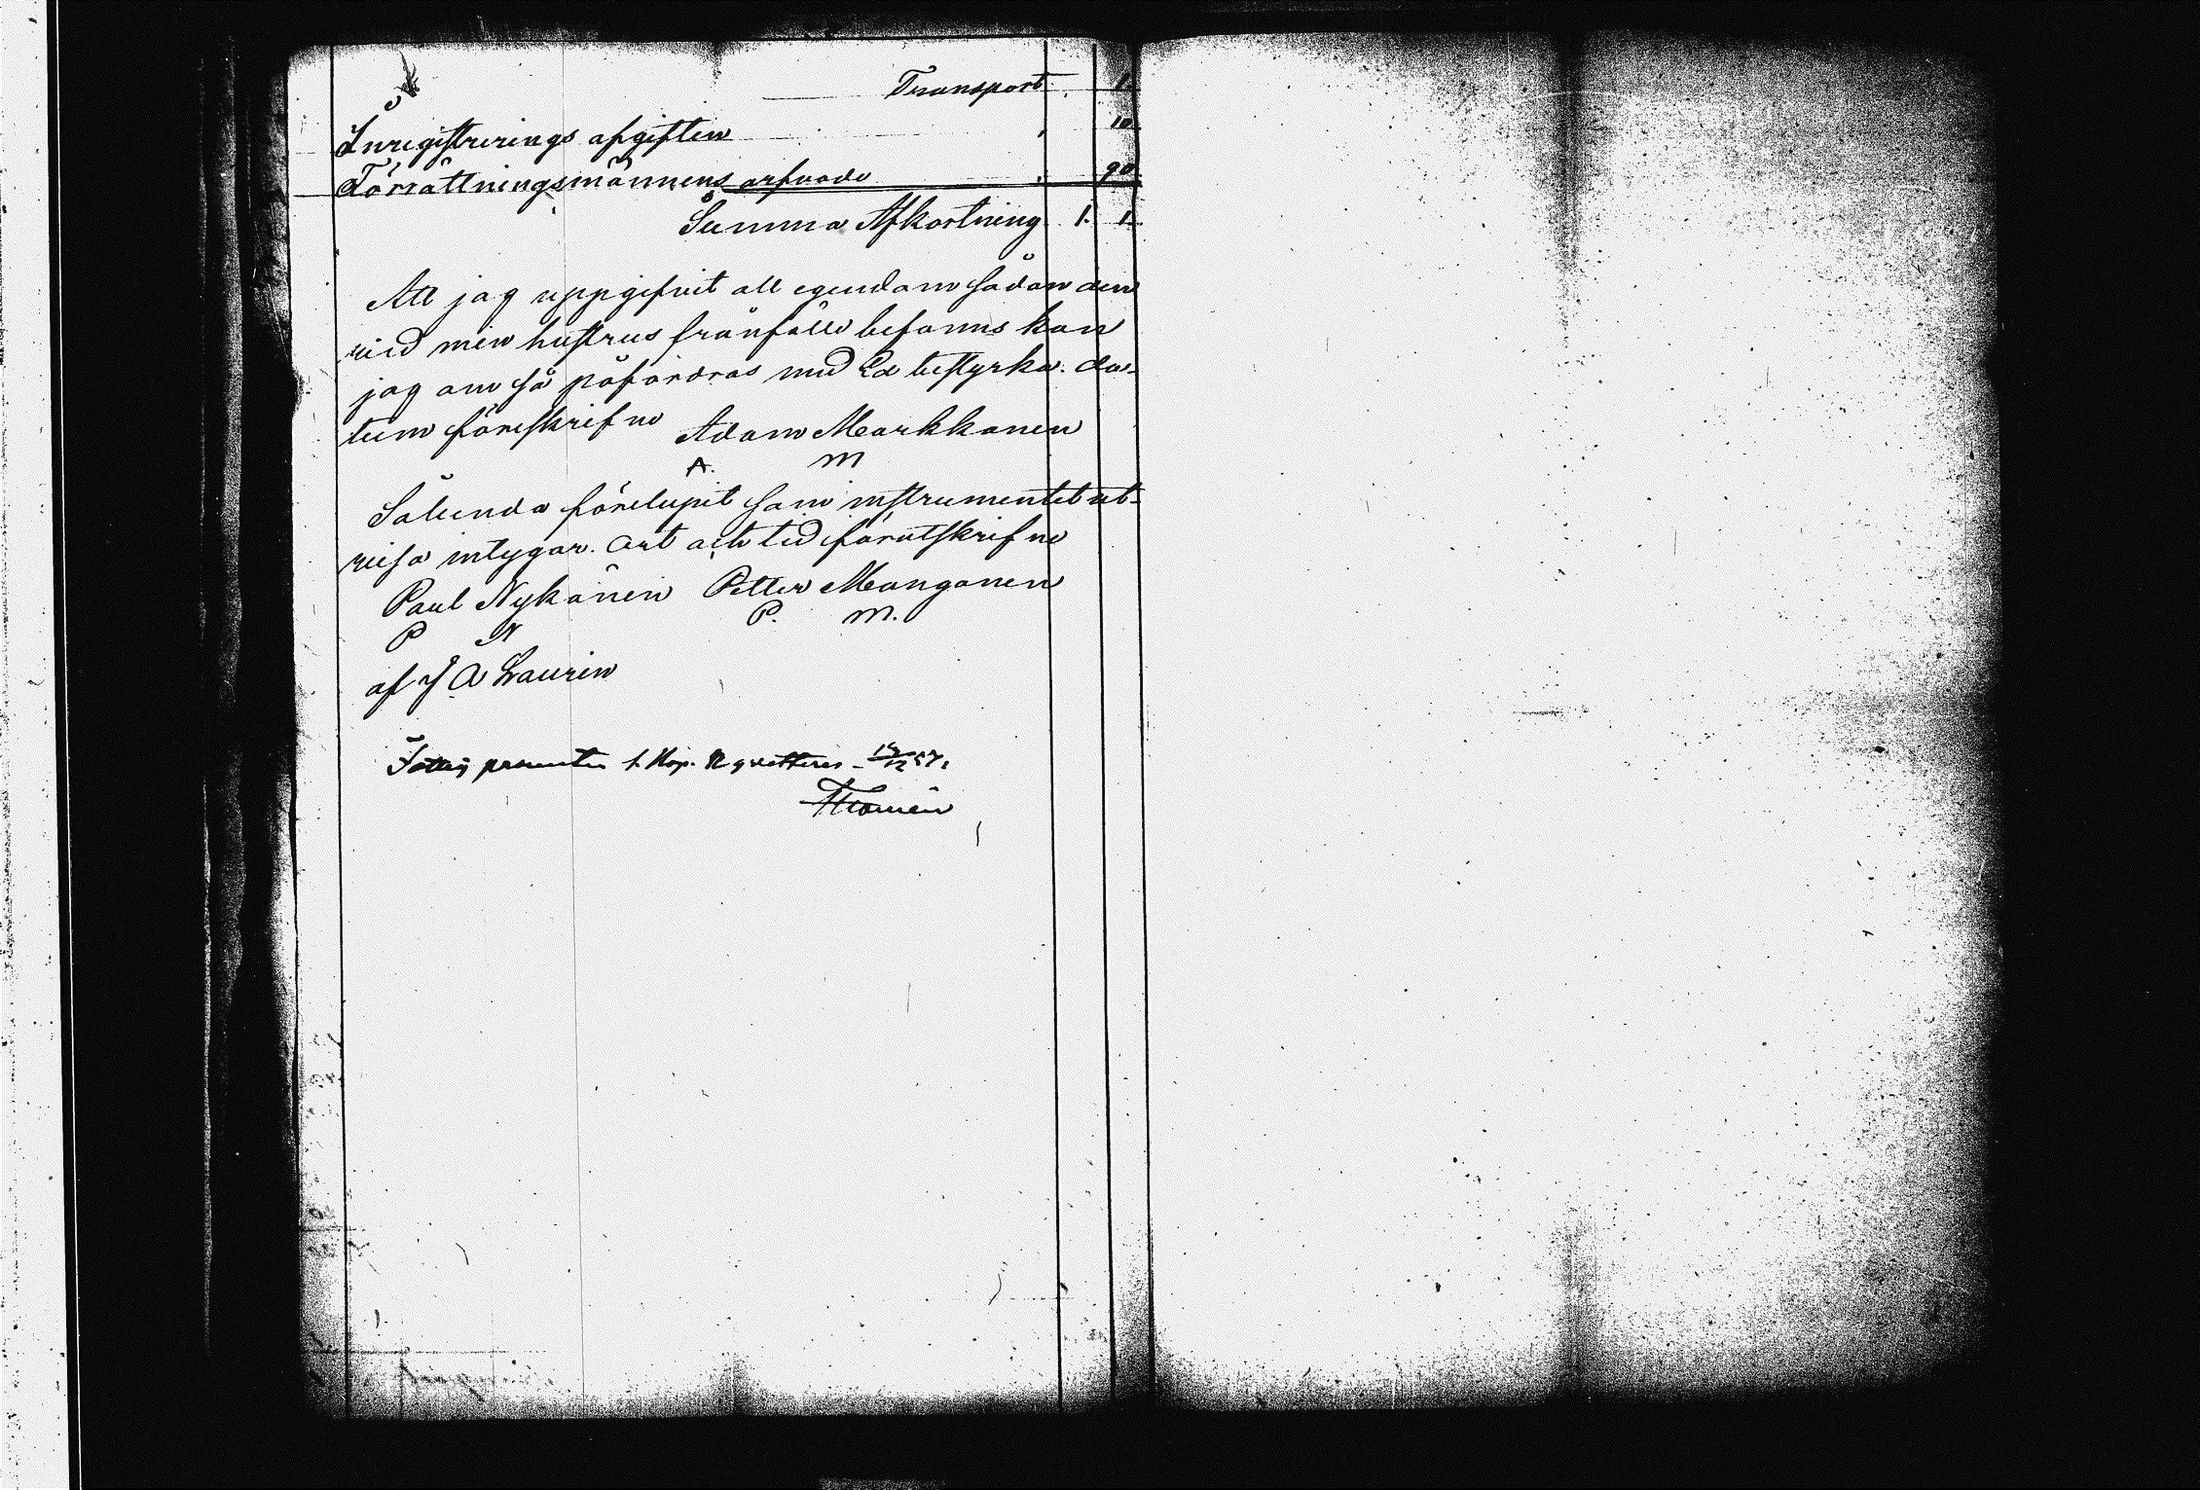 Transport 1.
Inregistrerings afgiften 10.
Förrättningsmännens arfvode 90.
Summa Afkortning 1. 1.
Att jag uppgifvit all egendom sådan den
vid min hustrus frånfälle befanns kan
jag om så påfordras med Ed bestyrka. da-
tum föreskrifne Adam Markkanen
A. M
Sålunda förelupit som instrumentet ut-
visa intygar. Ort och tid förutskrifne
Paul Nykänen Petter Manganen
P N P. M.
af J A Laurin
1. Kop. S qvitteras 57.